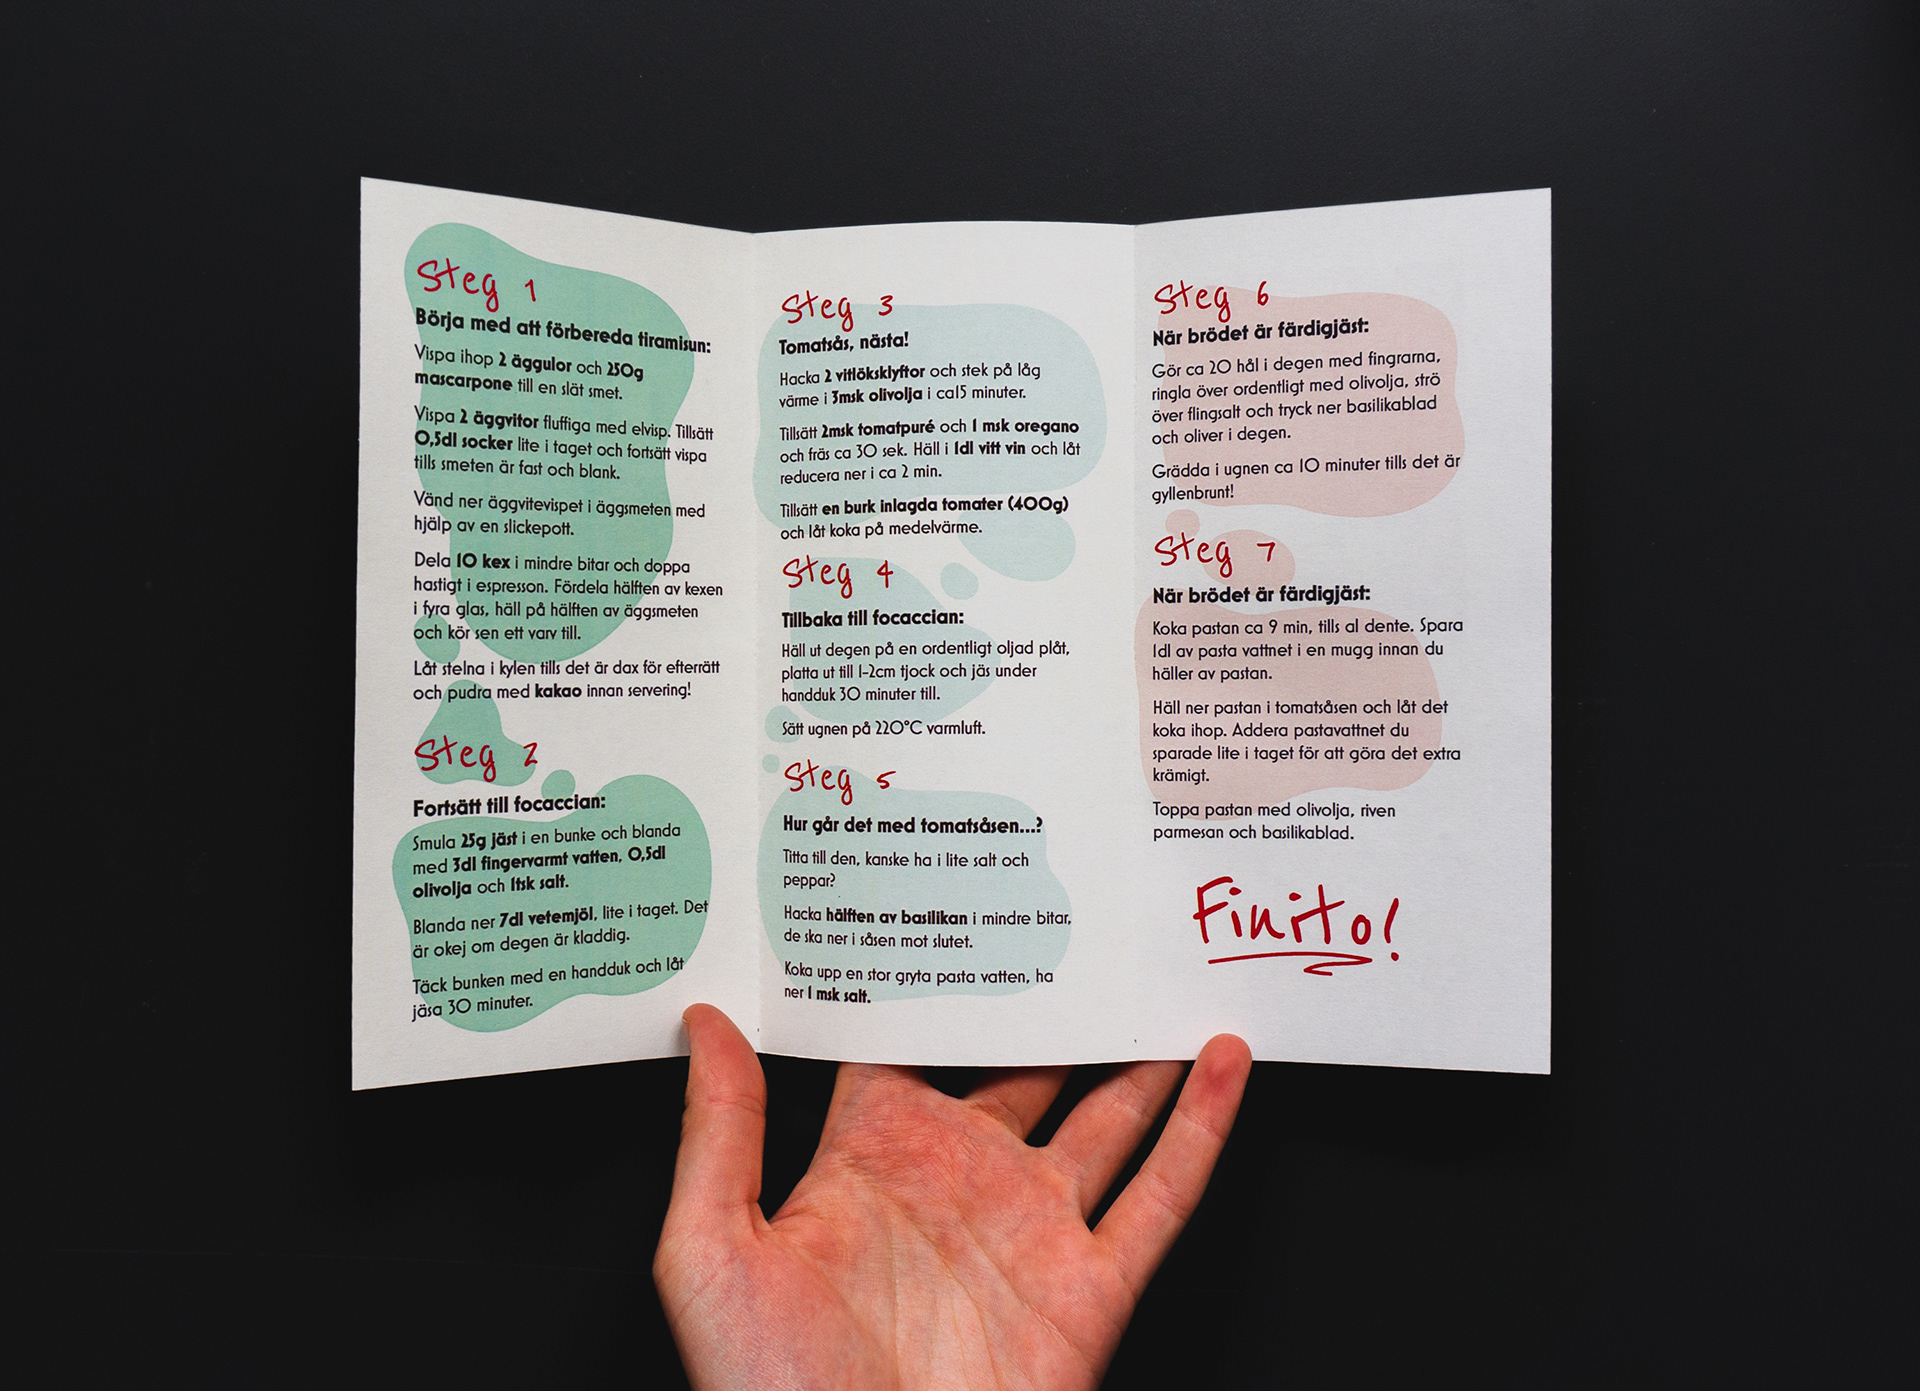 Steg 1
Börja med att förbereda tiramisun:
Vispa ihop 2 äggulor och 250g
mascarpone till en slät smet.
Vispa 2 äggvitor fluffiga med elvisp. Tillsätt
0,5dl socker lite i taget och fortsätt vispa
tills smeten är fast och blank.
Vänd ner äggvitevispet i äggsmeten med
hjälp av en slickepott.
Dela 10 kex i mindre bitar och doppa
hastigt i espresson. Fördela hälften av kexen
i fyra glas, häll på hälften av äggsmeten
och kör sen ett varv till.
Låt stelna i kylen tills det är dax för efterrätt
och pudra med kakao innan servering!
Steg 2
Fortsätt till focaccian:
Smula 25g jäst i en bunke och blanda
med 3dl fingervarmt vatten, 0,5dl
olivolja och 1tsk salt.
Blanda ner 7dl vetemjöl, lite i taget. Det
är okej om degen är kladdig.
Täck bunken med en handduk och låt
jäsa 30 minuter.
Steg 3
Tomatsås, nästa!
Hacka 2 vitlöksklyftor och stek på låg
värme i 3msk olivolja i ca15 minuter.
Tillsätt 2msk tomatpuré och 1 msk oregano
och fräs ca 30 sek. Häll i 1dl vitt vin och låt
reducera ner i ca 2 min.
Tillsätt en burk inlagda tomater (400g)
och låt koka på medelvärme.
Steg 4
Tillbaka till focaccian:
Häll ut degen på en ordentligt oljad plåt,
platta ut till 1-2cm tjock och jäs under
handduk 30 minuter till.
Sätt ugnen på 220°C varmluft.
Steg 5
Hur går det med tomatsåsen...?
Titta till den, kanske ha i lite salt och
peppar?
Hacka hälften av basilikan i mindre bitar,
de ska ner i såsen mot slutet.
Koka upp en stor gryta pasta vatten, ha
ner 1 msk salt.
Steg 6
När brödet är färdigjäst:
Gör ca 20 hål i degen med fingrarna,
ringla över ordentligt med olivolja, strö
över flingsalt och tryck ner basilikablad
och oliver i degen.
Grädda i ugnen ca 10 minuter tills det är
gyllenbrunt!
Steg 7
När brödet är färdigjäst:
Koka pastan ca 9 min, tills al dente. Spara
1dl av pasta vattnet i en mugg innan du
häller av pastan.
Häll ner pastan i tomatsåsen och låt det
koka ihop. Addera pastavattnet du
sparade lite i taget för att göra det extra
krämigt.
Toppa pastan med olivolja, riven
parmesan och basilikablad.
Finito!